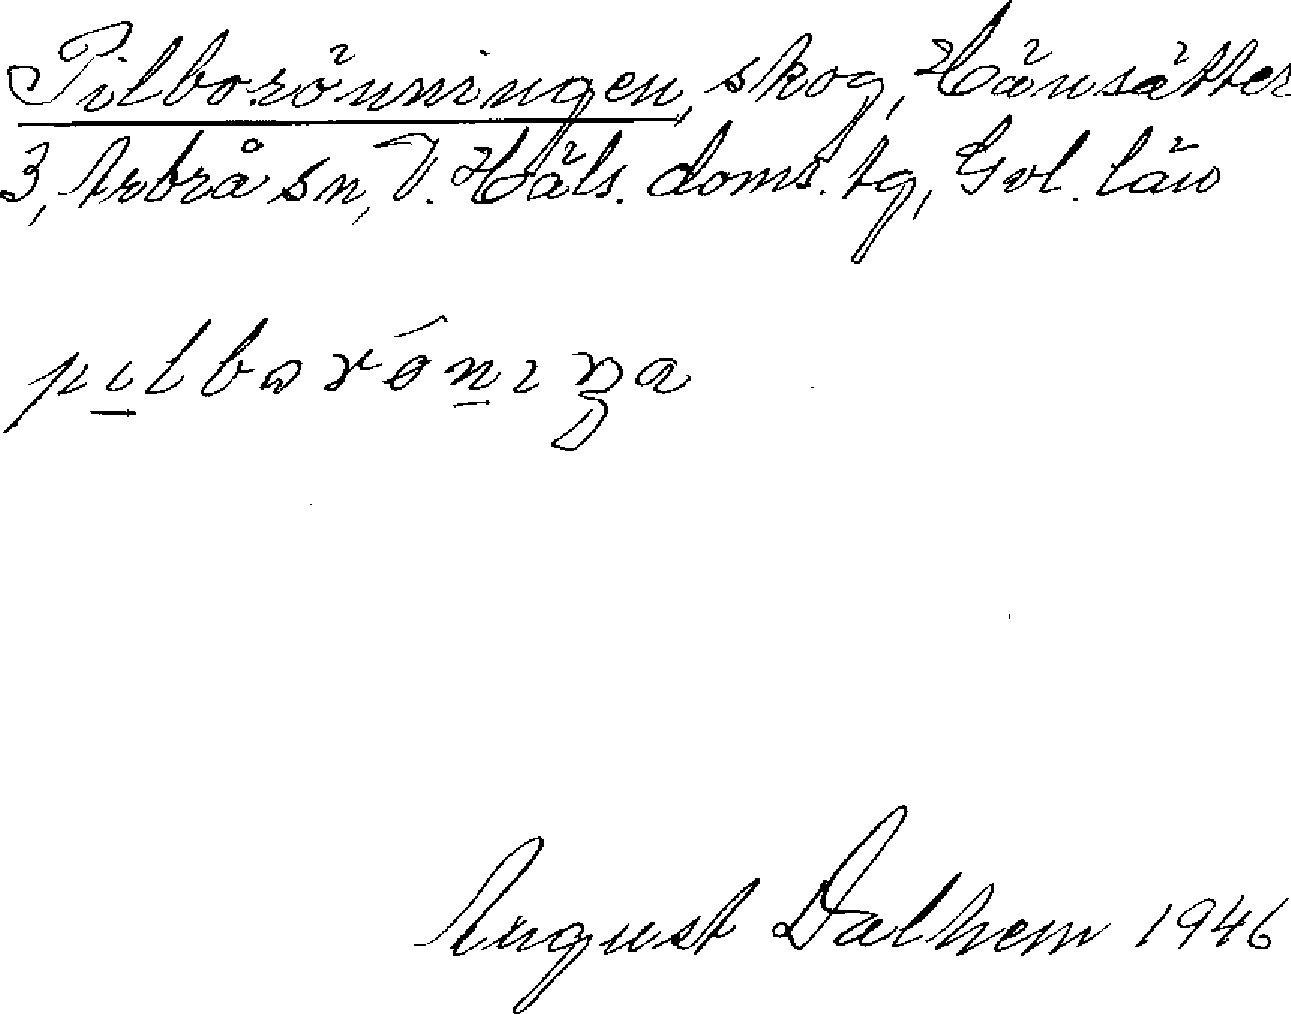 Pilborönningen, skog, Hänsätter
3, Arbrå sn, V. Häls. doms. tg, Gvl. län
pılborónıŋa
August Dalhem 1946